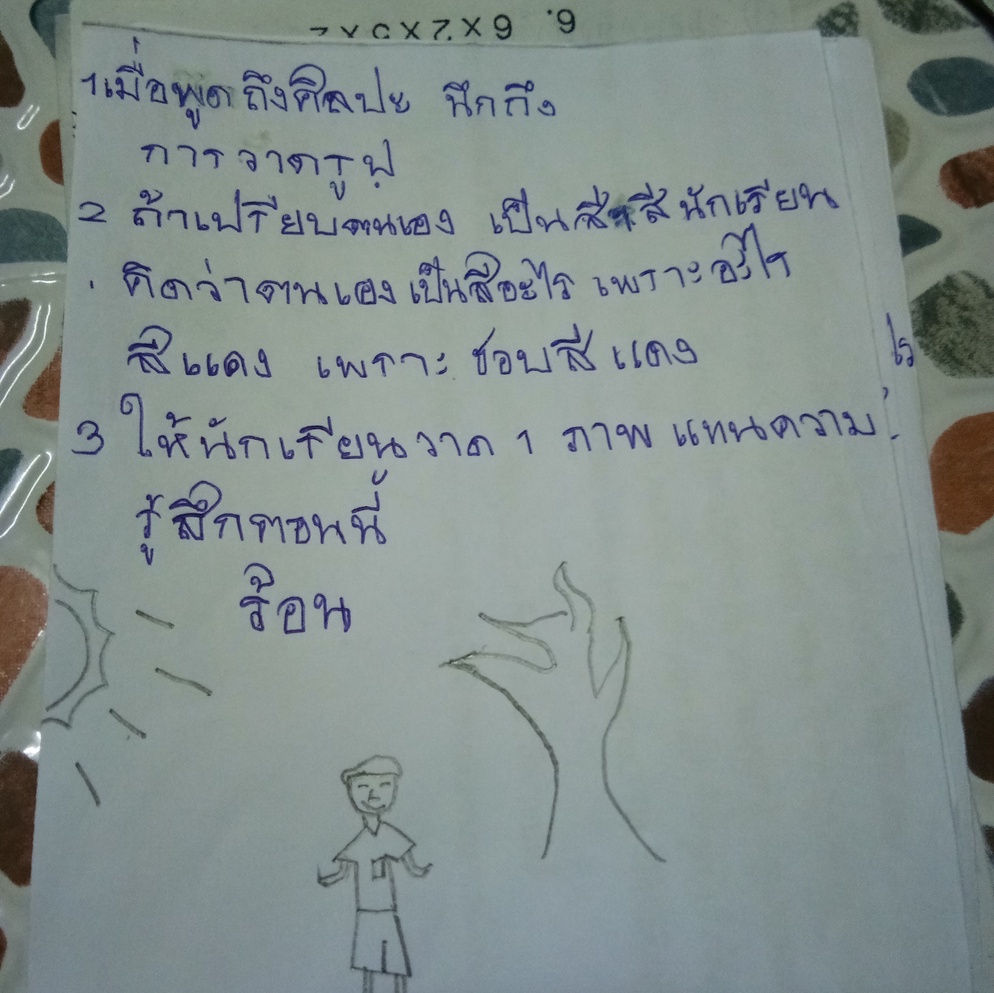 6. 6×2×5×2
1 เมื่อพูดถึงศิลปะ นึกถึง
การวาดรูป
2 ถ้าเปรียบตนเอง เป็นสี สีนักเรียน
คิดว่าตนเองเป็นสีอะไร เพราะอะไร
สีแดง เพราะ ชอบสีแดง
3 ให้นักเรียนวาด 1 ภาพ แทนความ
รู้สึกตอนนี้
ร้อน